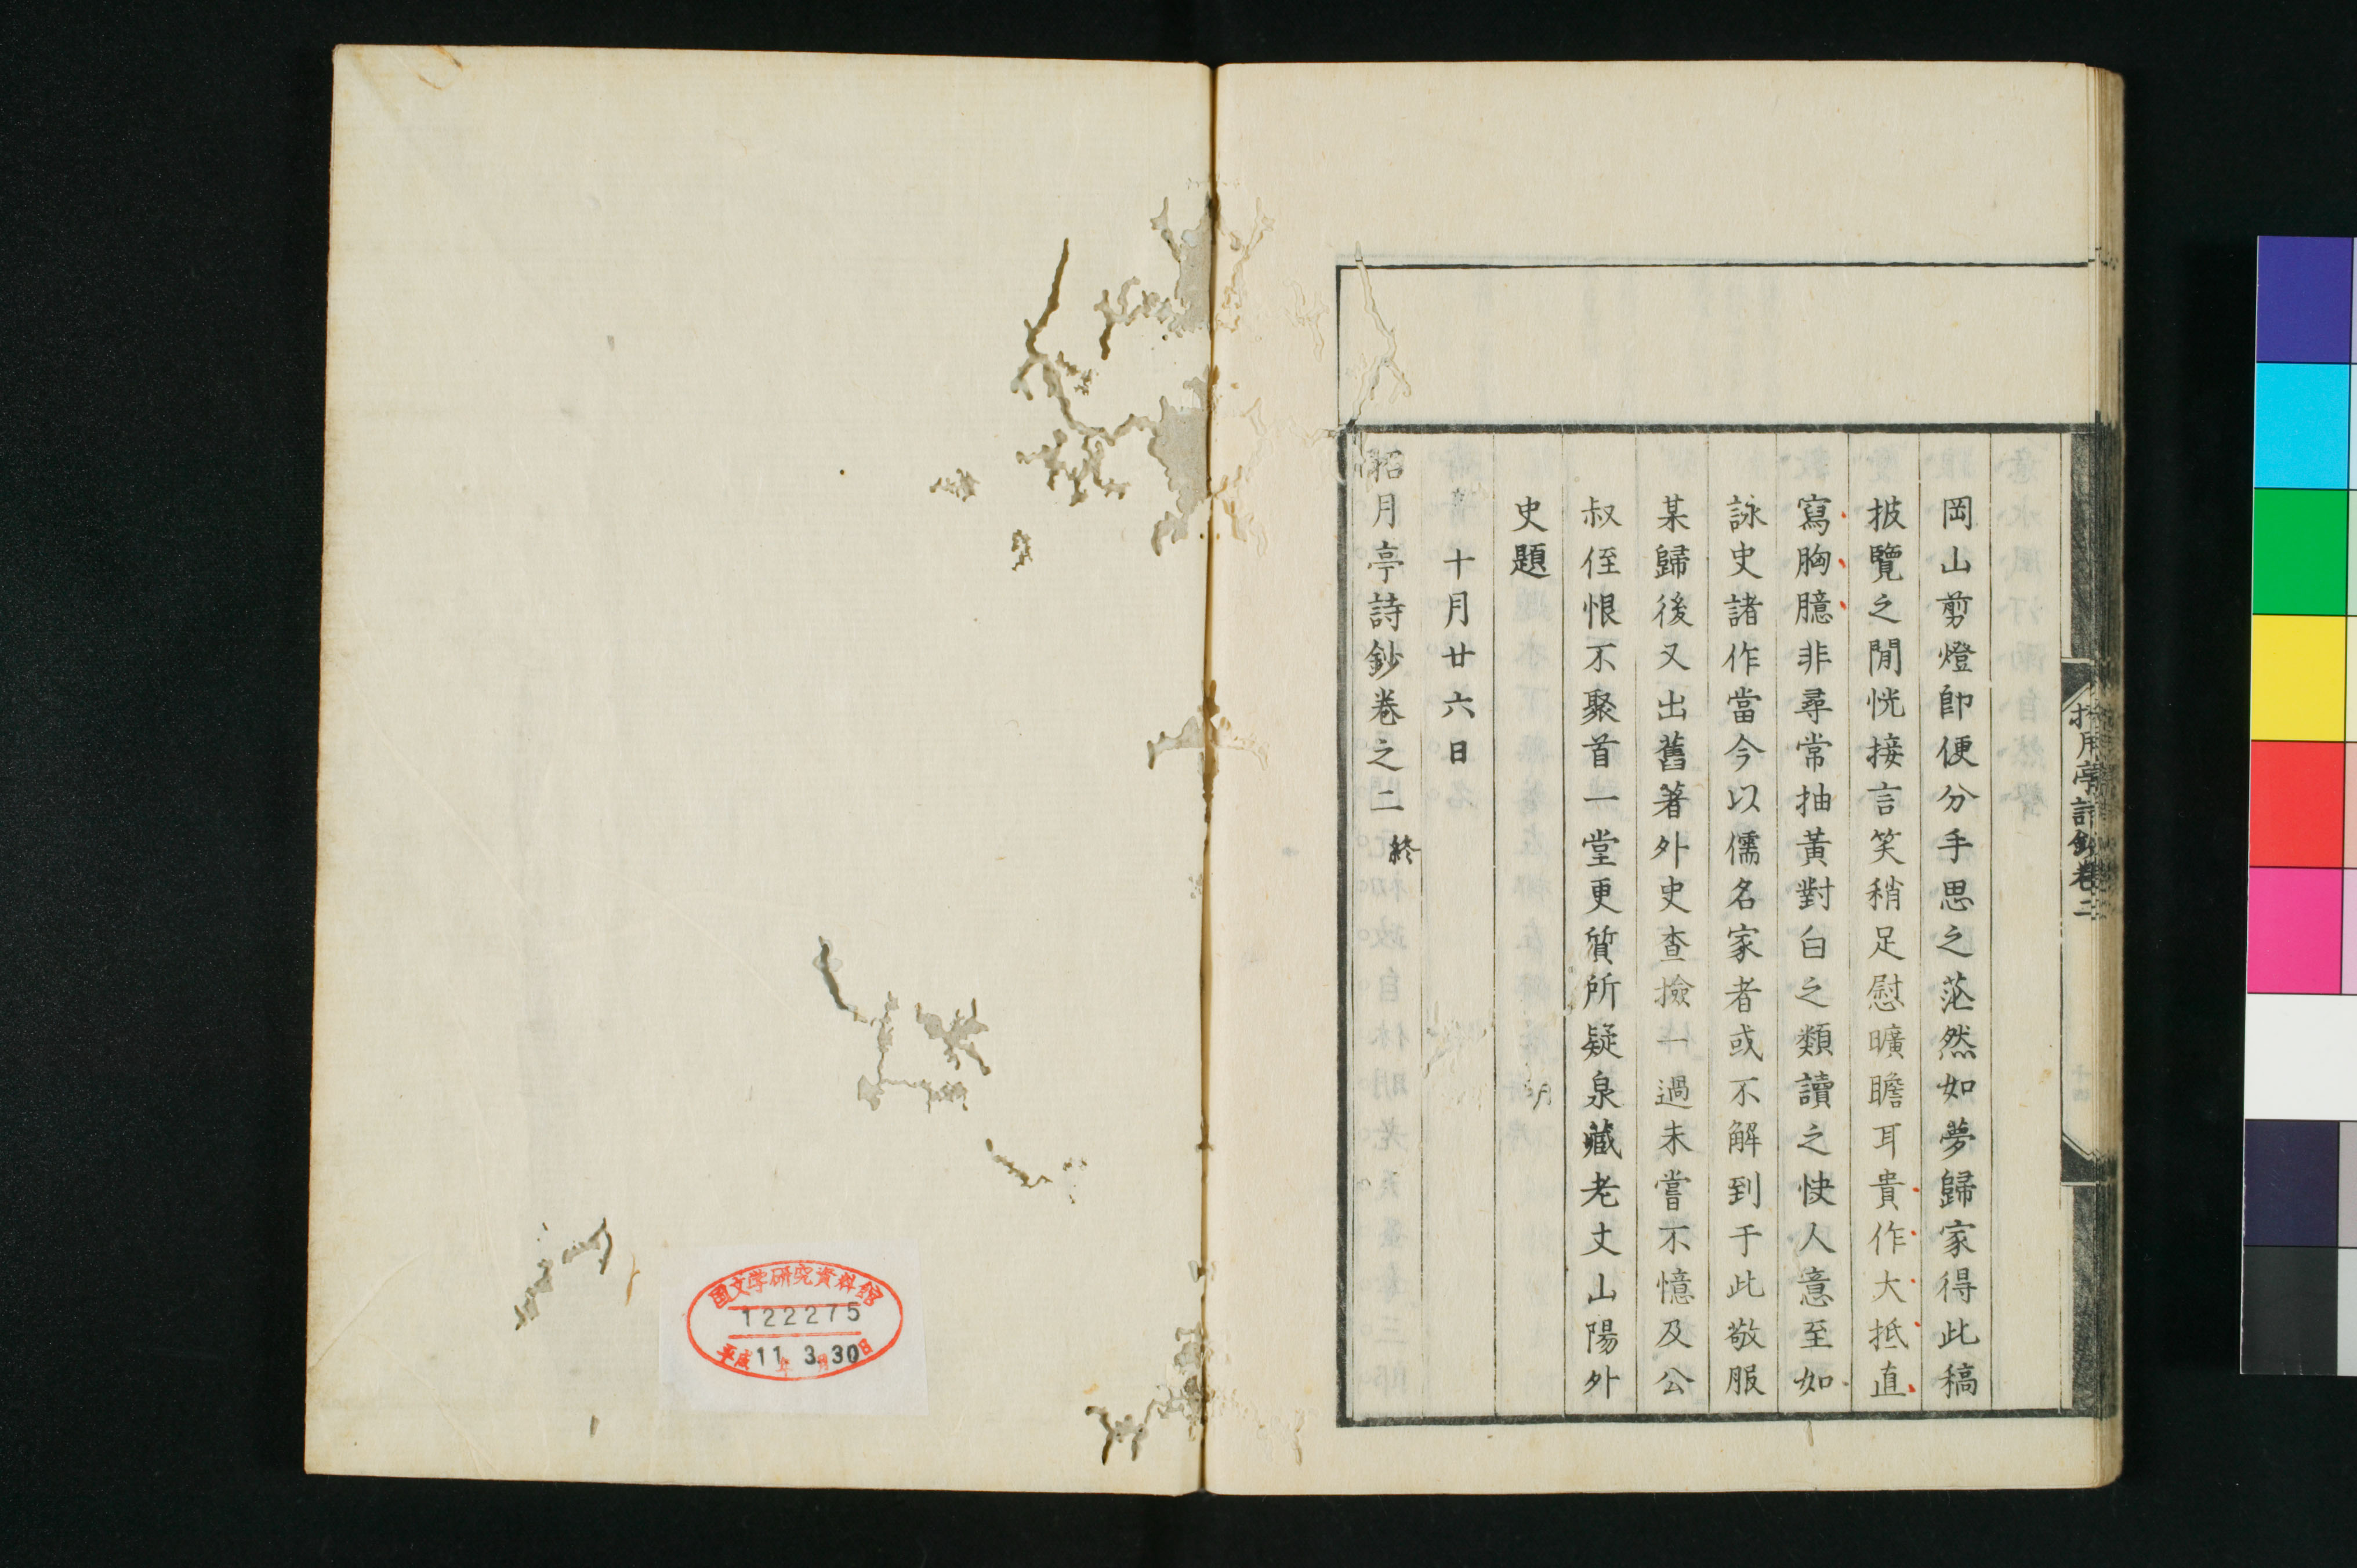 岡山剪燈卽便分手思之茫然如夢歸家得此稿
披覽之閒恍接言笑稍足慰曠瞻耳貴作大抵直
寫胸臆非尋常抽黃對白之類讀之快人意至如
詠史諸作當今以儒名家者或不解到于此敬服
某歸後又出舊著外史查撿一過未嘗不憶及公
叔侄恨不聚首一堂更質所疑泉藏老丈山陽外
史題
十月廿六日
招月亭詩鈔卷之二 終
招月亭詩鈔卷二
國文学研究資料館
122275
平成11年3月30日